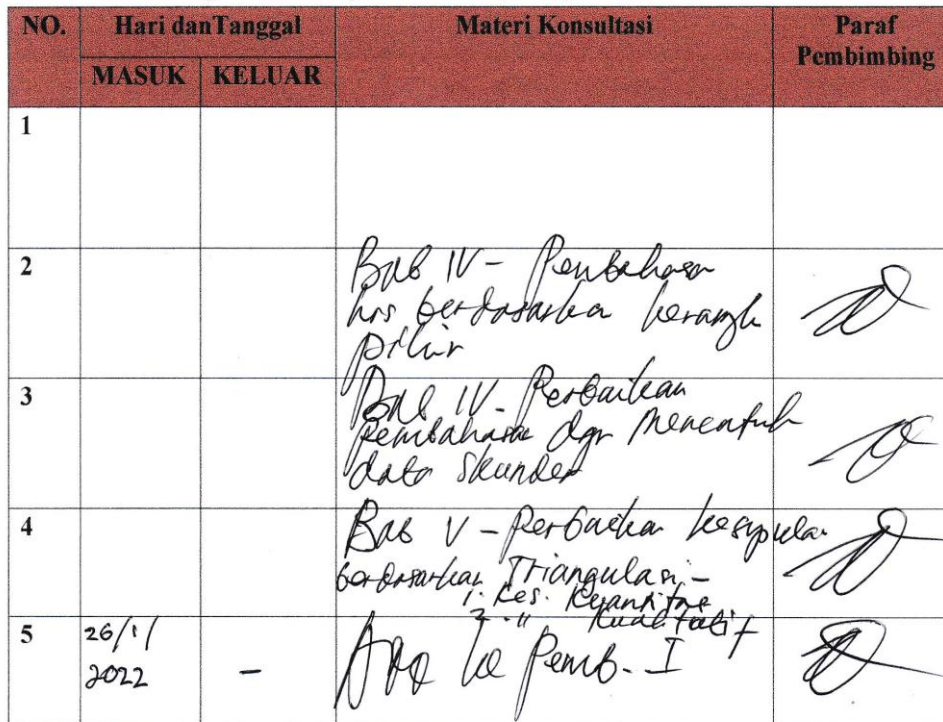 NO. Hari danTanggal Materi Konsultasi Paraf
Pembimbing
MASUK KELUAR
1
2 Bab IV - Pembahasan
hrs berdasarkan kerangk
pikir
3 Bab IV - Perbaikan
Pembahasan dgn
data Skunder
4 Bab V - Perbaikan
berdasarkan Triangulasi -
1. Kes. Kuantitas
2. " Kualitatif
5 26/1/ - ke Pemb. I
2022